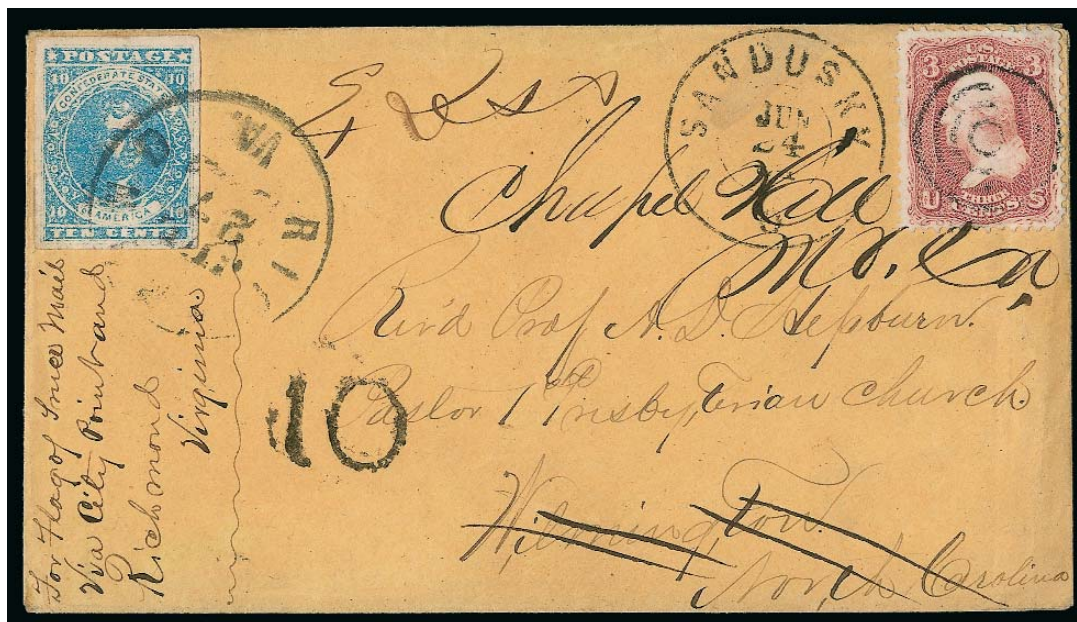 POSTAGE
10 10
CONFEDERATE STATES
OF AMERICA
10 10
TEN CENTS
RICHMOND VA.
SANDUSKY
JUN
24
3 U.S. 3
POSTAGE
U S
Chapel Hill
No. Ca.
Rev'd Prof A. D. Hepburn.
Pastor 1st Presbyterian church
Wilmington Town.
North Carolina
10
For Flag of Truce Mail
Via City Point and
Richmond
Virginia